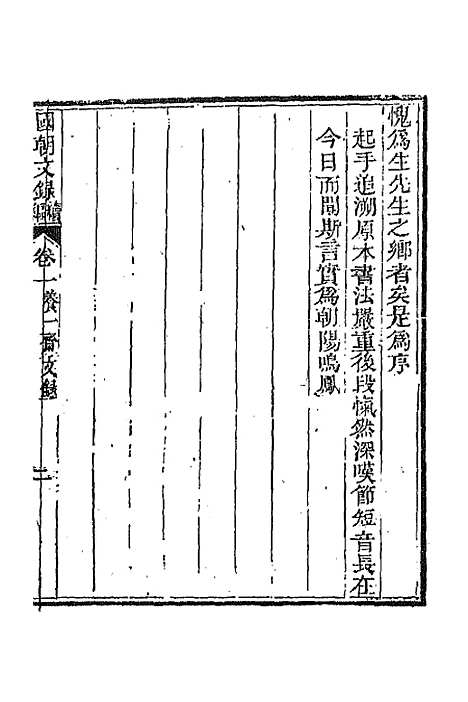 愧爲生先生之鄉者矣是爲序
起手追溯原本書法嚴重後段愾然深嘆節短音長在
今日而聞斯言實爲朝陽鳴鳳
國朝文錄續編 卷一 養一齋文錄 二